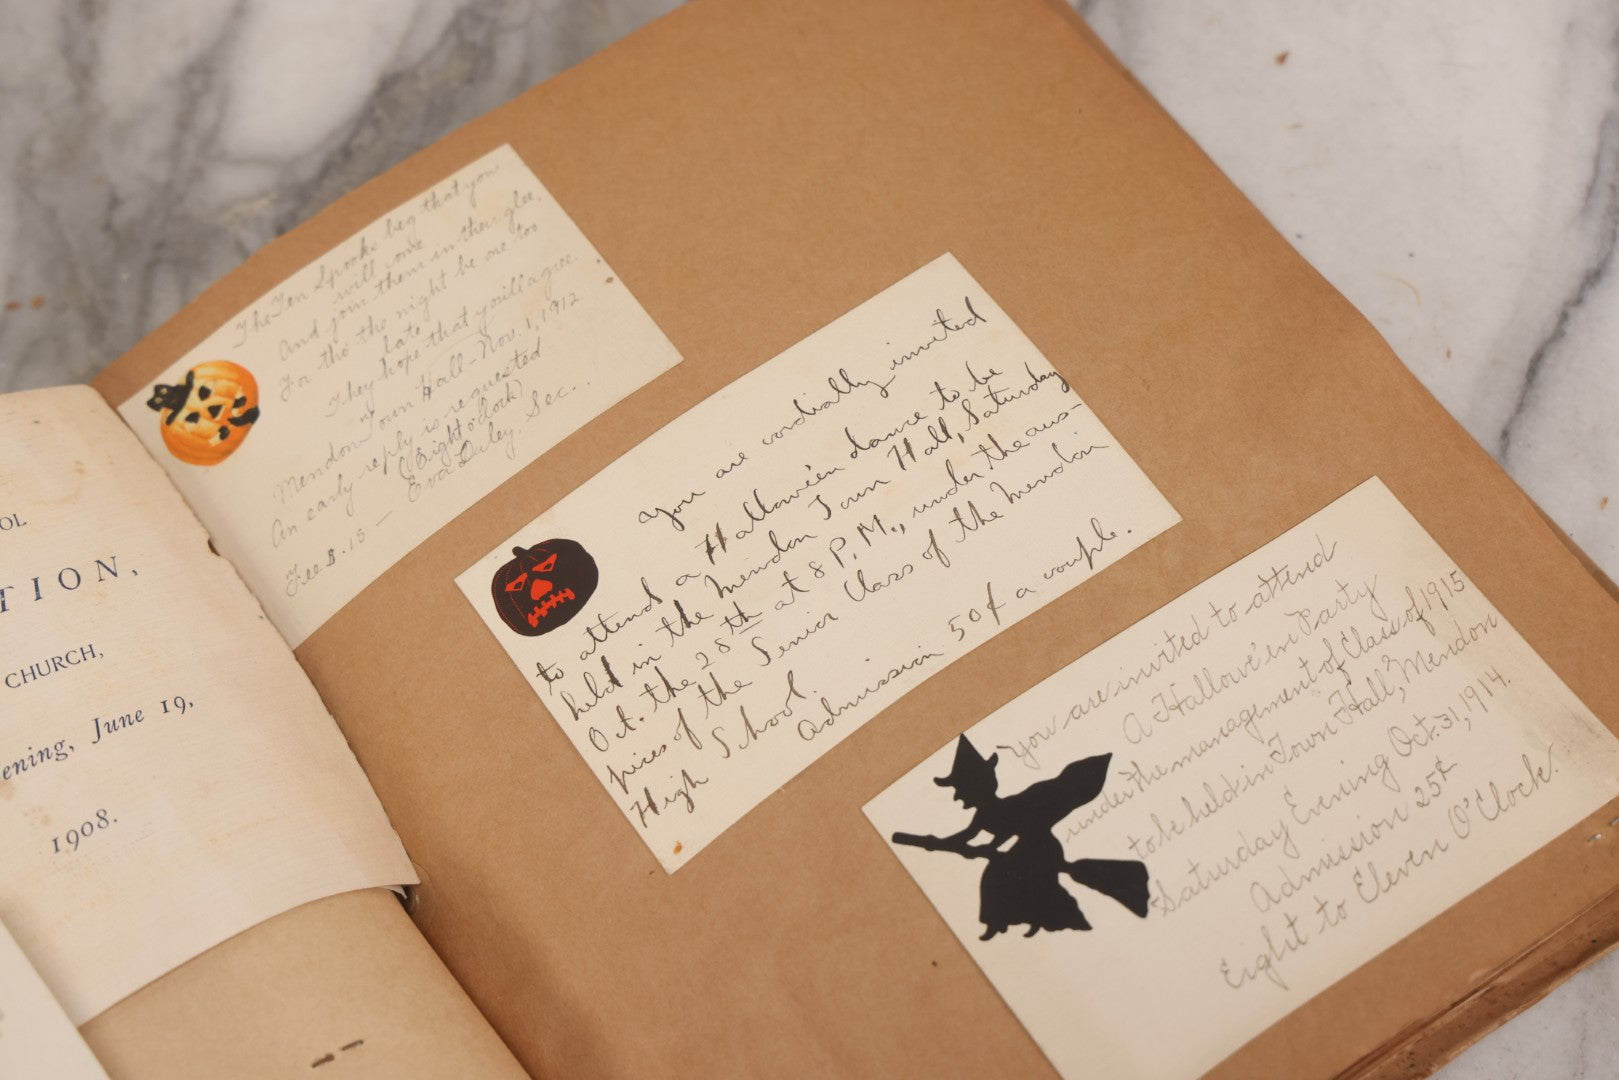 OL
TION,
CHURCH,
ening, June 19,
1908.
The Ten Spooks beg that you
will come
And join them in their glee,
For tho' the night be one too
late
They hope that you'll agree.
Mendon Town Hall - Nov. 1, 1912
An early reply is requested
(Eight o'clock)
Eva Daley, Sec.
.15 —
You are cordially invited
to attend a Hallowe'en dance to be
held in the Mendon Town Hall, Saturday
Oct. the 28th at 8 P.M., under the aus-
pices of the Senior Class of the Mendon
High School.
Admission 50¢ a couple.
You are invited to attend
A Hallowe'en Party
under the management of Class of 1915
to be held in Town Hall, Mendon
Saturday Evening Oct. 31, 1914.
Admission 25¢
Eight to Eleven O'Clock.